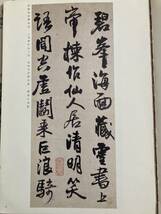 碧峯海面藏靈書上
帝揀作仙人居清明笑
語聞空虛鬬乘巨浪騎